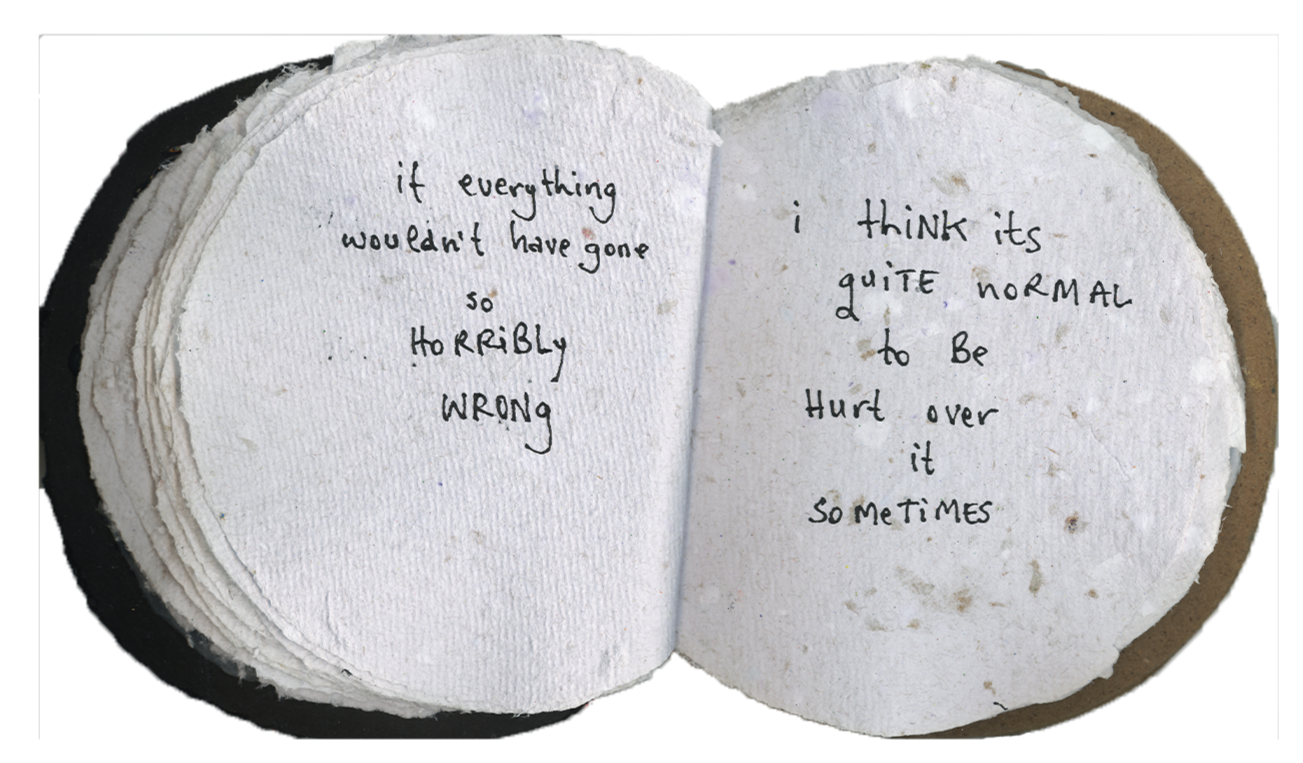 if everything
wouldn't have gone
so
HoRRiBLy
WRONg
i thiNK its
quiTE noRMAL
to Be
Hurt over
it
SoMeTiMES